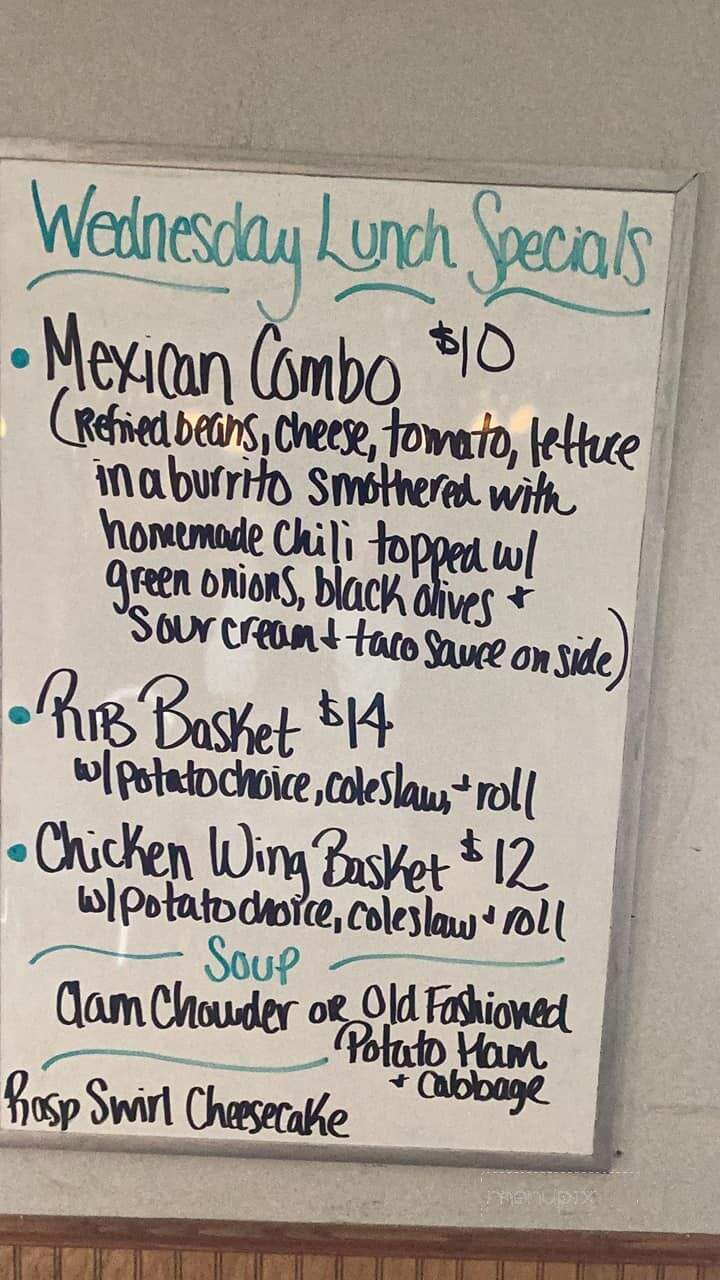 Wednesday Lunch Specials
• Mexican Combo $10
(Refried beans, cheese, tomato, lettuce
in a burrito smothered with
homemade chili topped w/
green onions, black olives +
sour cream + taco sauce on side)
• Rib Basket $14
w/ potato choice, coleslaw, + roll
• Chicken Wing Basket $12
w/ potato choice, coleslaw + roll
Soup
Clam Chowder or Old Fashioned
Potato Ham
+ Cabbage
Rasp Swirl Cheesecake
menupix